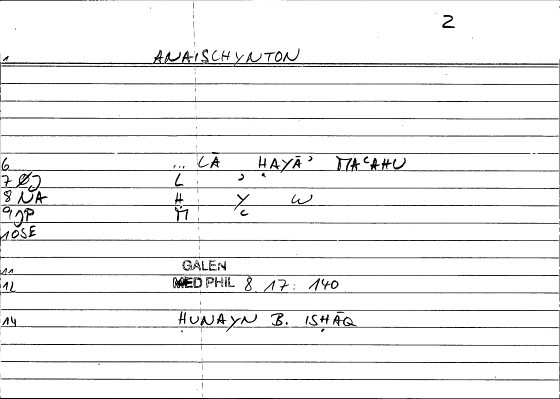 2
1 ANAISCHYNTON
6 ... LĀ ḤAYĀʾ MAʿAHU
7 ØJ L ʾ ʿ
8 NA Ḥ Y W
9 JP M ʿ
10 SE
11 GALEN
12 MED PHIL 8. 17: 140
14 ḤUNAYN B. ISḤĀQ